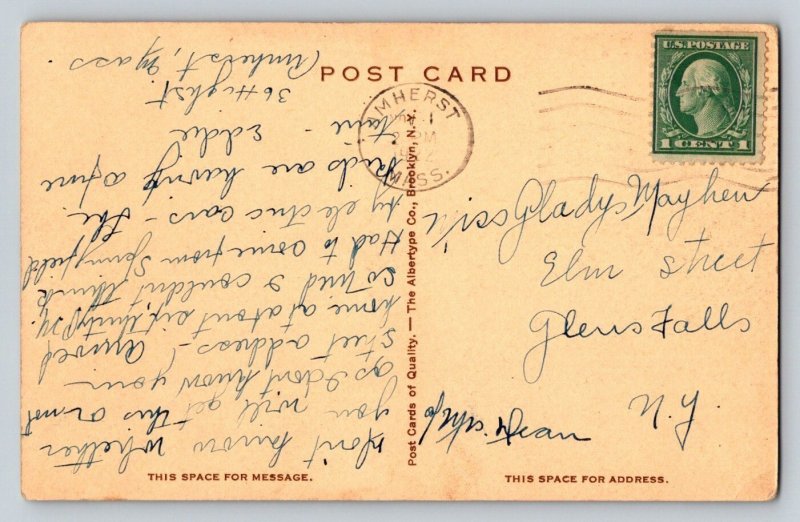 POST CARD
U.S. POSTAGE
1 CENT 1
AMHERST
1
PM
MASS.
Gladys Mayhew
Elm Street
Glens Falls
N.Y.
c/o Mrs. Dean
Don't know whether
you will get this or not
as I don't know your
street address - Arrived
home at about six thirty P.M.
so tired I couldn't think
Had to come from Springfield
by electric cars - The
kids are having a fine
time - Eddie
36 High St.
Amherst, Mass
Post Cards of Quality. — The Albertype Co., Brooklyn, N.Y.
THIS SPACE FOR MESSAGE.
THIS SPACE FOR ADDRESS.